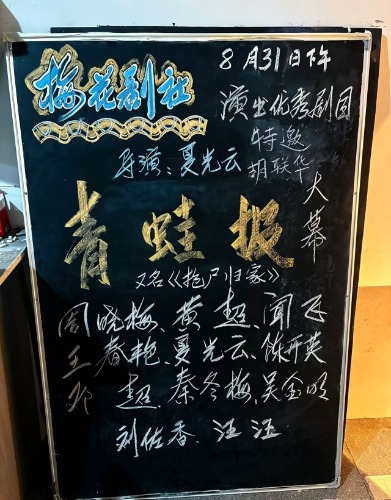 梅花剧社
8月31日下午
演出优秀剧目
特邀
胡联华
导演：夏光云
大幕
青蛙报
又名《拖尸归家》
周晓梅、黄超、闻飞
王春艳、夏光云、陈开英
邓超、秦冬梅、吴金明
刘佑香、汪汪